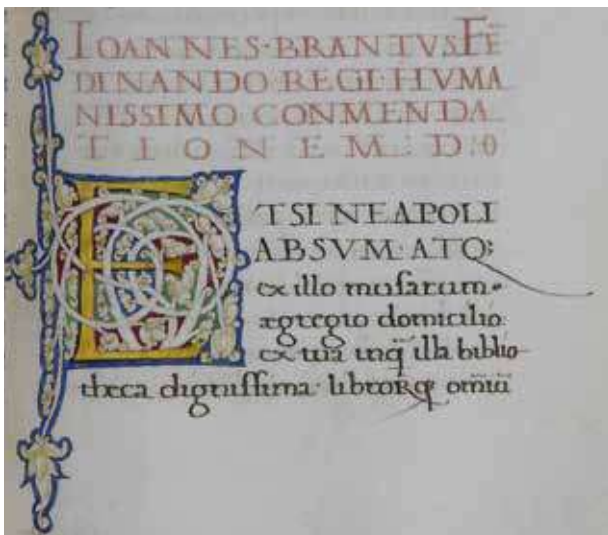 IOANNES·BRANTVS FẼ
DINANDO REGI HVMA
NISSIMO CONMENDA
TIONEM: D:O
ETSI NEAPOLI
ABSVM·ATQ;
ex illo musarum
ægregio domicilio
ex tua inq̃ illa biblio
theca dignissima· librorq; om̃iũ